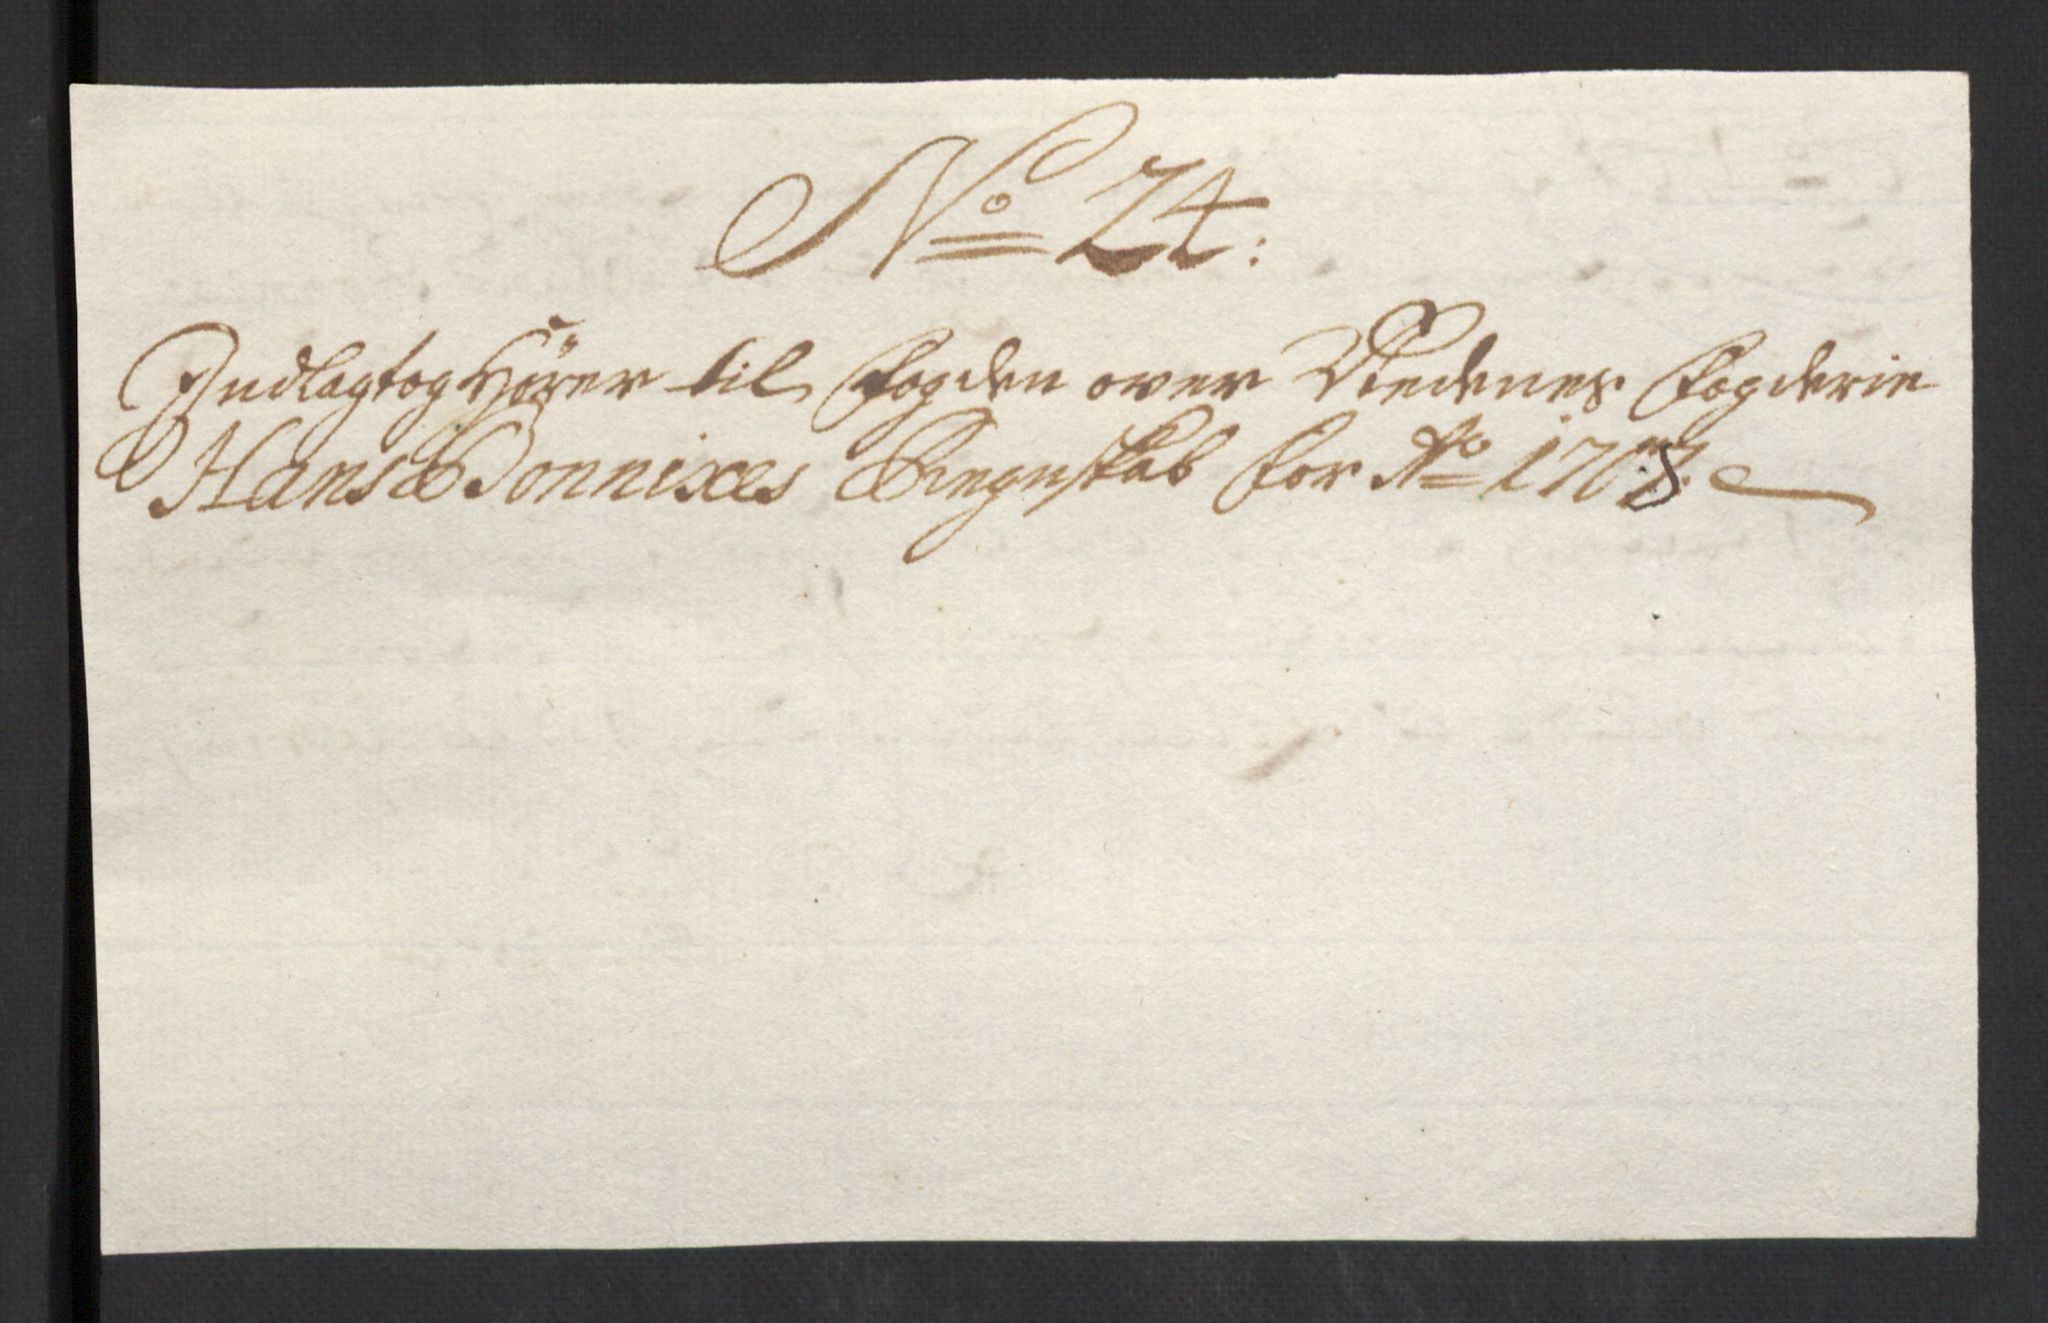 No 24:
Indlagt og Hörer til Fogden over Nedenes Fogderie
Hans Bonnixes Regnskab for Ao 1708.